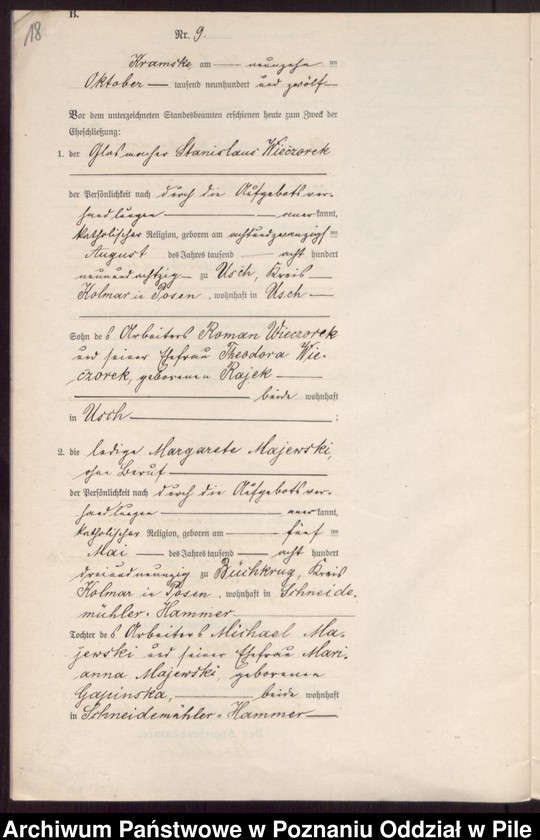 18
B.
Nr. 9.
Kramske am — neunzehn ten
Oktober — tausend neunhundert und zwölf —
Vor dem unterzeichneten Standesbeamten erschienen heute zum Zweck der
Eheschließung:
1. der Glasmacher Stanislaus Wieczorek
der Persönlichkeit nach durch die Aufgebotsver-
handlungen — anerkannt,
katholischer Religion, geboren am achtundzwanzigsten
August des Jahres tausend — acht hundert
neunundachtzig — zu Usch, Kreis —
Kolmar in Posen, wohnhaft in Usch —
Sohn des Arbeiters Roman Wieczorek
und seiner Ehefrau Theodora Wie-
czorek, geborenen Rajek —
beide wohnhaft
in Usch — ;
2. die ledige Margarete Majewski,
ohne Beruf —
der Persönlichkeit nach durch die Aufgebotsver-
handlungen — anerkannt,
katholischer Religion, geboren am — fünf ten
Mai — des Jahres tausend — acht hundert
dreiundneunzig zu Büchkrug, Kreis
Kolmar in Posen, wohnhaft in Schneide-
mühler-Hammer —
Tochter des Arbeiters Michael Ma-
jewski und seiner Ehefrau Mari-
anna Majewski, geborenen
Gapinska, — beide wohnhaft
in Schneidemühler-Hammer —
Archiwum Państwowe w Poznaniu Oddział w Pile